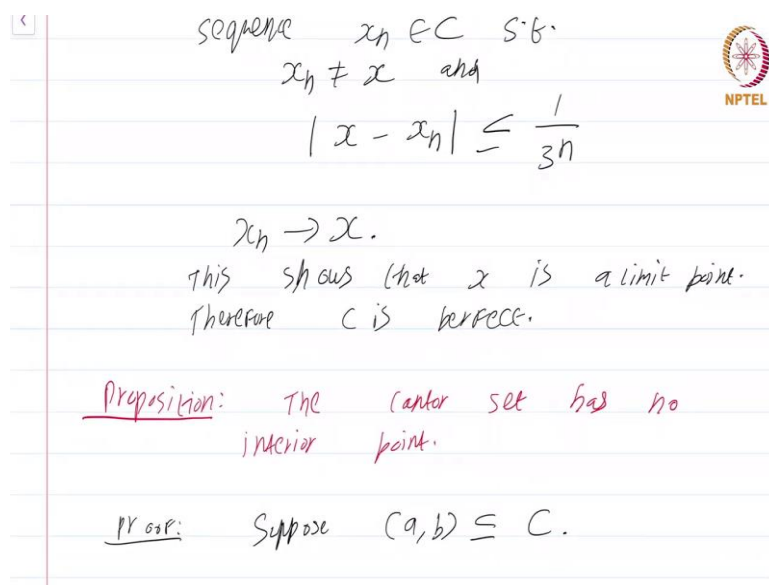 sequence xn ∈ C s.t.
xn ≠ x and
|x - xn| ≤ 1/3^n
NPTEL
xn → x.
This shows that x is a limit point.
Therefore C is perfect.
Proposition: The Cantor set has no
interior point.
Proof: Suppose (a,b) ⊆ C.